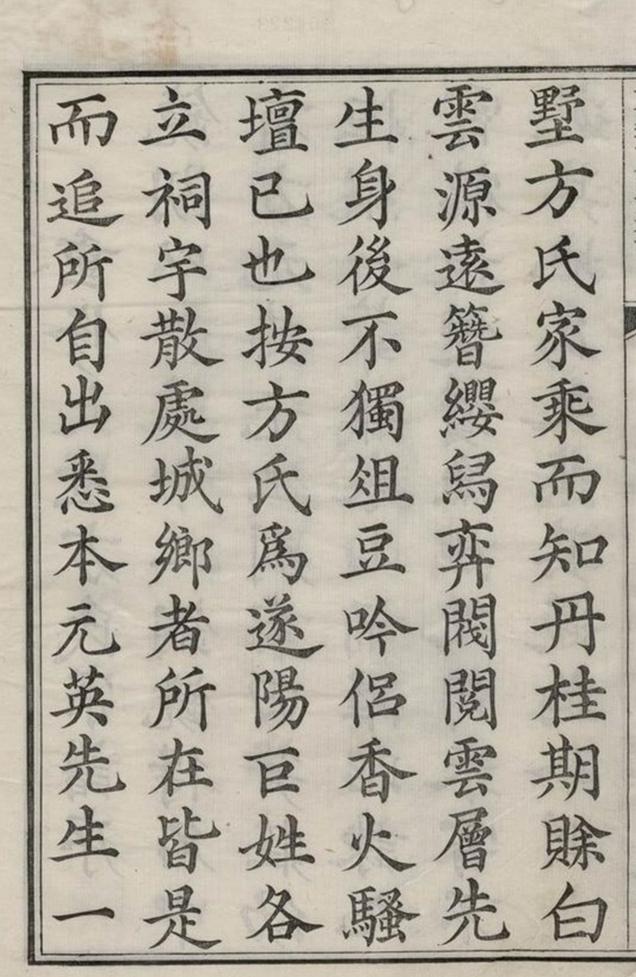 墅方氏家乘而知丹桂期賖白
雲源遠簪纓舄弈閥閱雲層先
生身後不獨俎豆吟侶香火騷
壇已也按方氏爲遂陽巨姓各
立祠宇散處城鄉者所在皆是
而追所自出悉本元英先生一